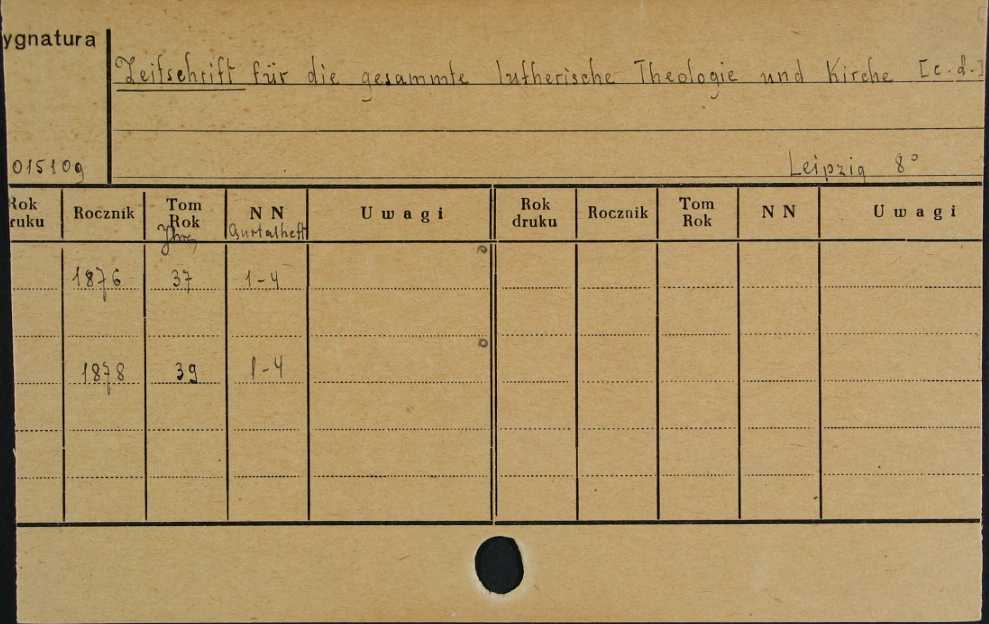 ygnatura
Zeitschrift für die gesammte lutherische Theologie und Kirche [c.d.]
015109
Leipzig 8°
Rok druku Rocznik Tom Rok N N Uwagi Rok druku Rocznik Tom Rok N N Uwagi
Qurtalheft
1876 37 1-4
1878 39 1-4